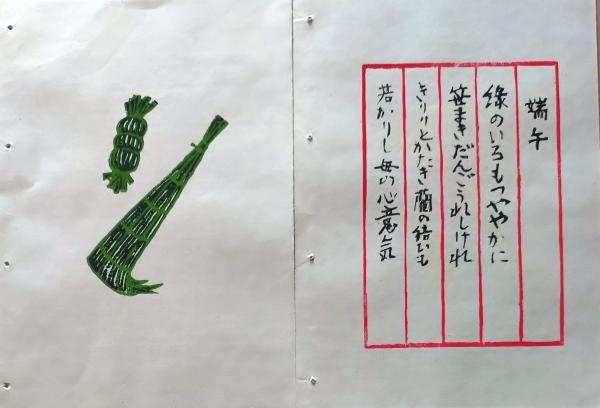 端午
緑のいろもつややかに
笹まきだんごうれしけれ
きりりとかたき藺の結いも
若かりし母の心意気